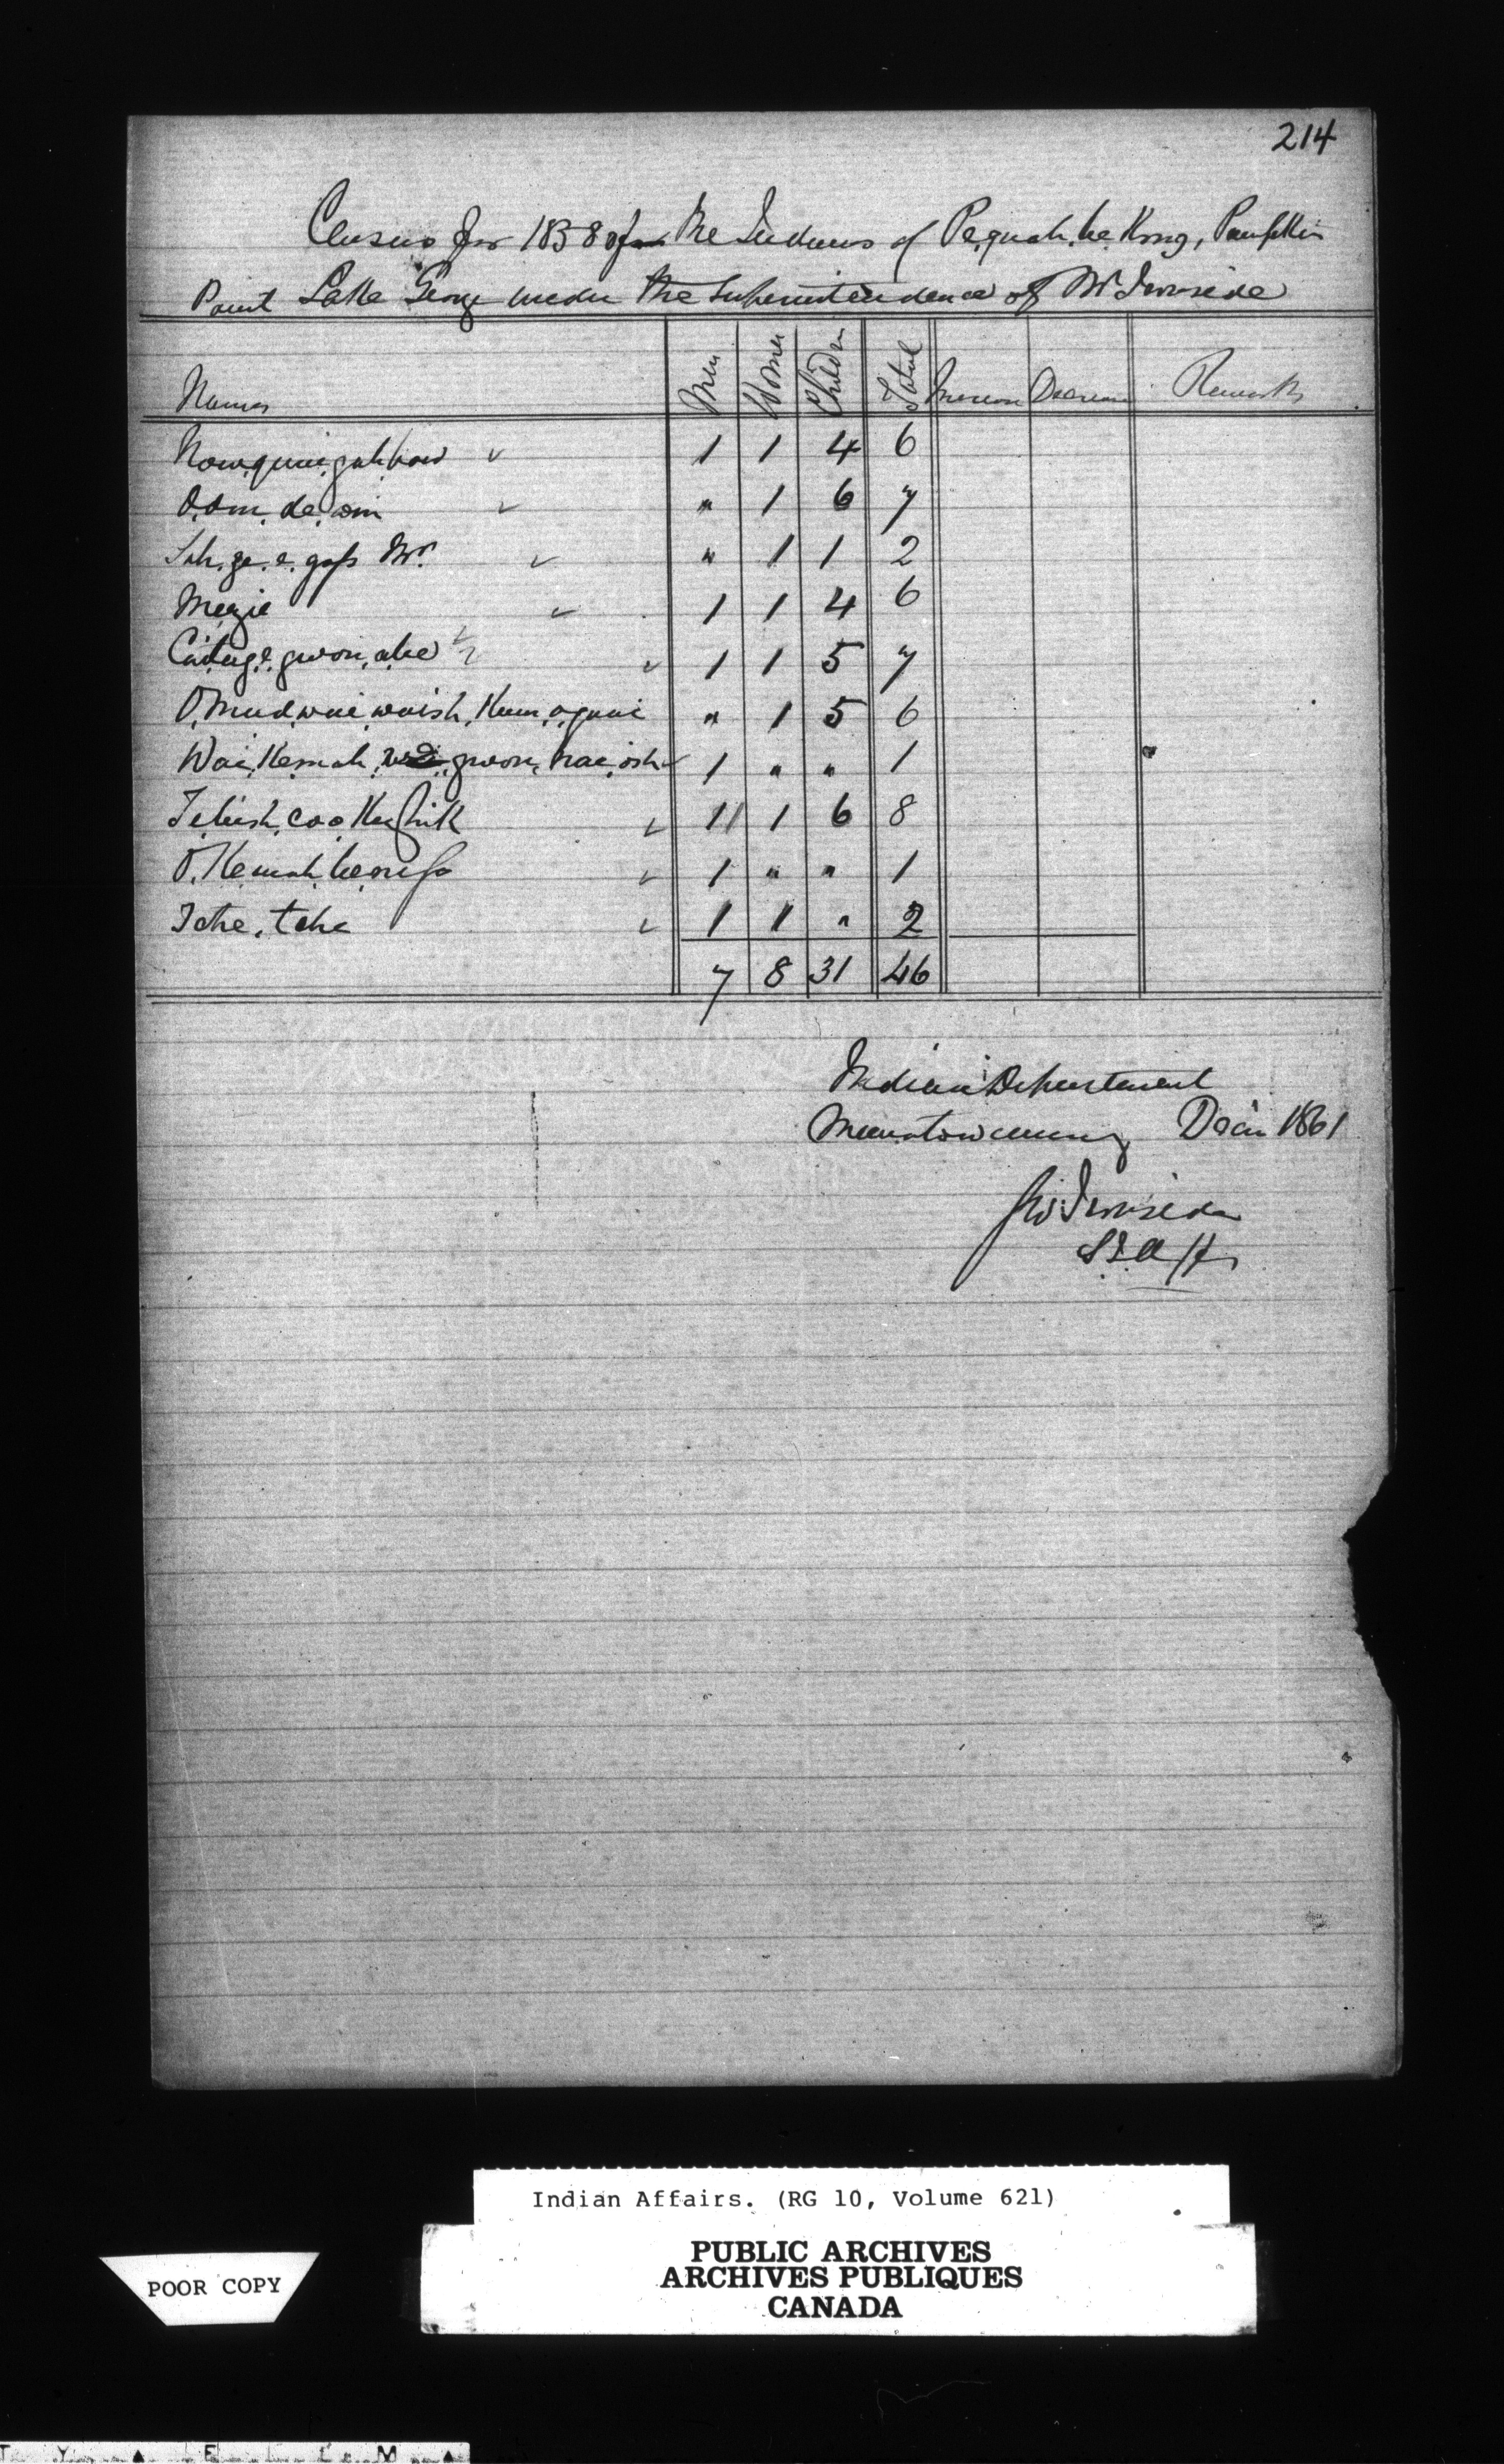 214
Census for 1858 of the Indians of Pe,quah,be,Kong, Pumpkin
Point Lake George under the Superintendence of Mr Ironside
Names Men Women Children Total Increase Decrease Remarks
Now,quai,gah,bow ✓ 1 1 4 6
O,dom,de,win ✓ " 1 6 7
Sah,ge,e,gass Mrs ✓ " 1 1 2
Megie ✓ 1 1 4 6
gwon,abe ✓ 1 1 5 7
O,mudwai,waish,Kum,oquai " 1 5 6
Wai,Kemah, gwon,nai,osh ✓ 1 " " 1
Tebish,coo,Ke,shik ✓ 1 1 6 8
O,Kemah,bense ✓ 1 " " 1
Tche,tche ✓ 1 1 " 2
7 8 31 46
Indian Department
Manatowaning Decr 1861
GIronside
S.I.Affs
Indian Affairs. (RG 10, Volume 621)
PUBLIC ARCHIVES
ARCHIVES PUBLIQUES
CANADA
POOR COPY